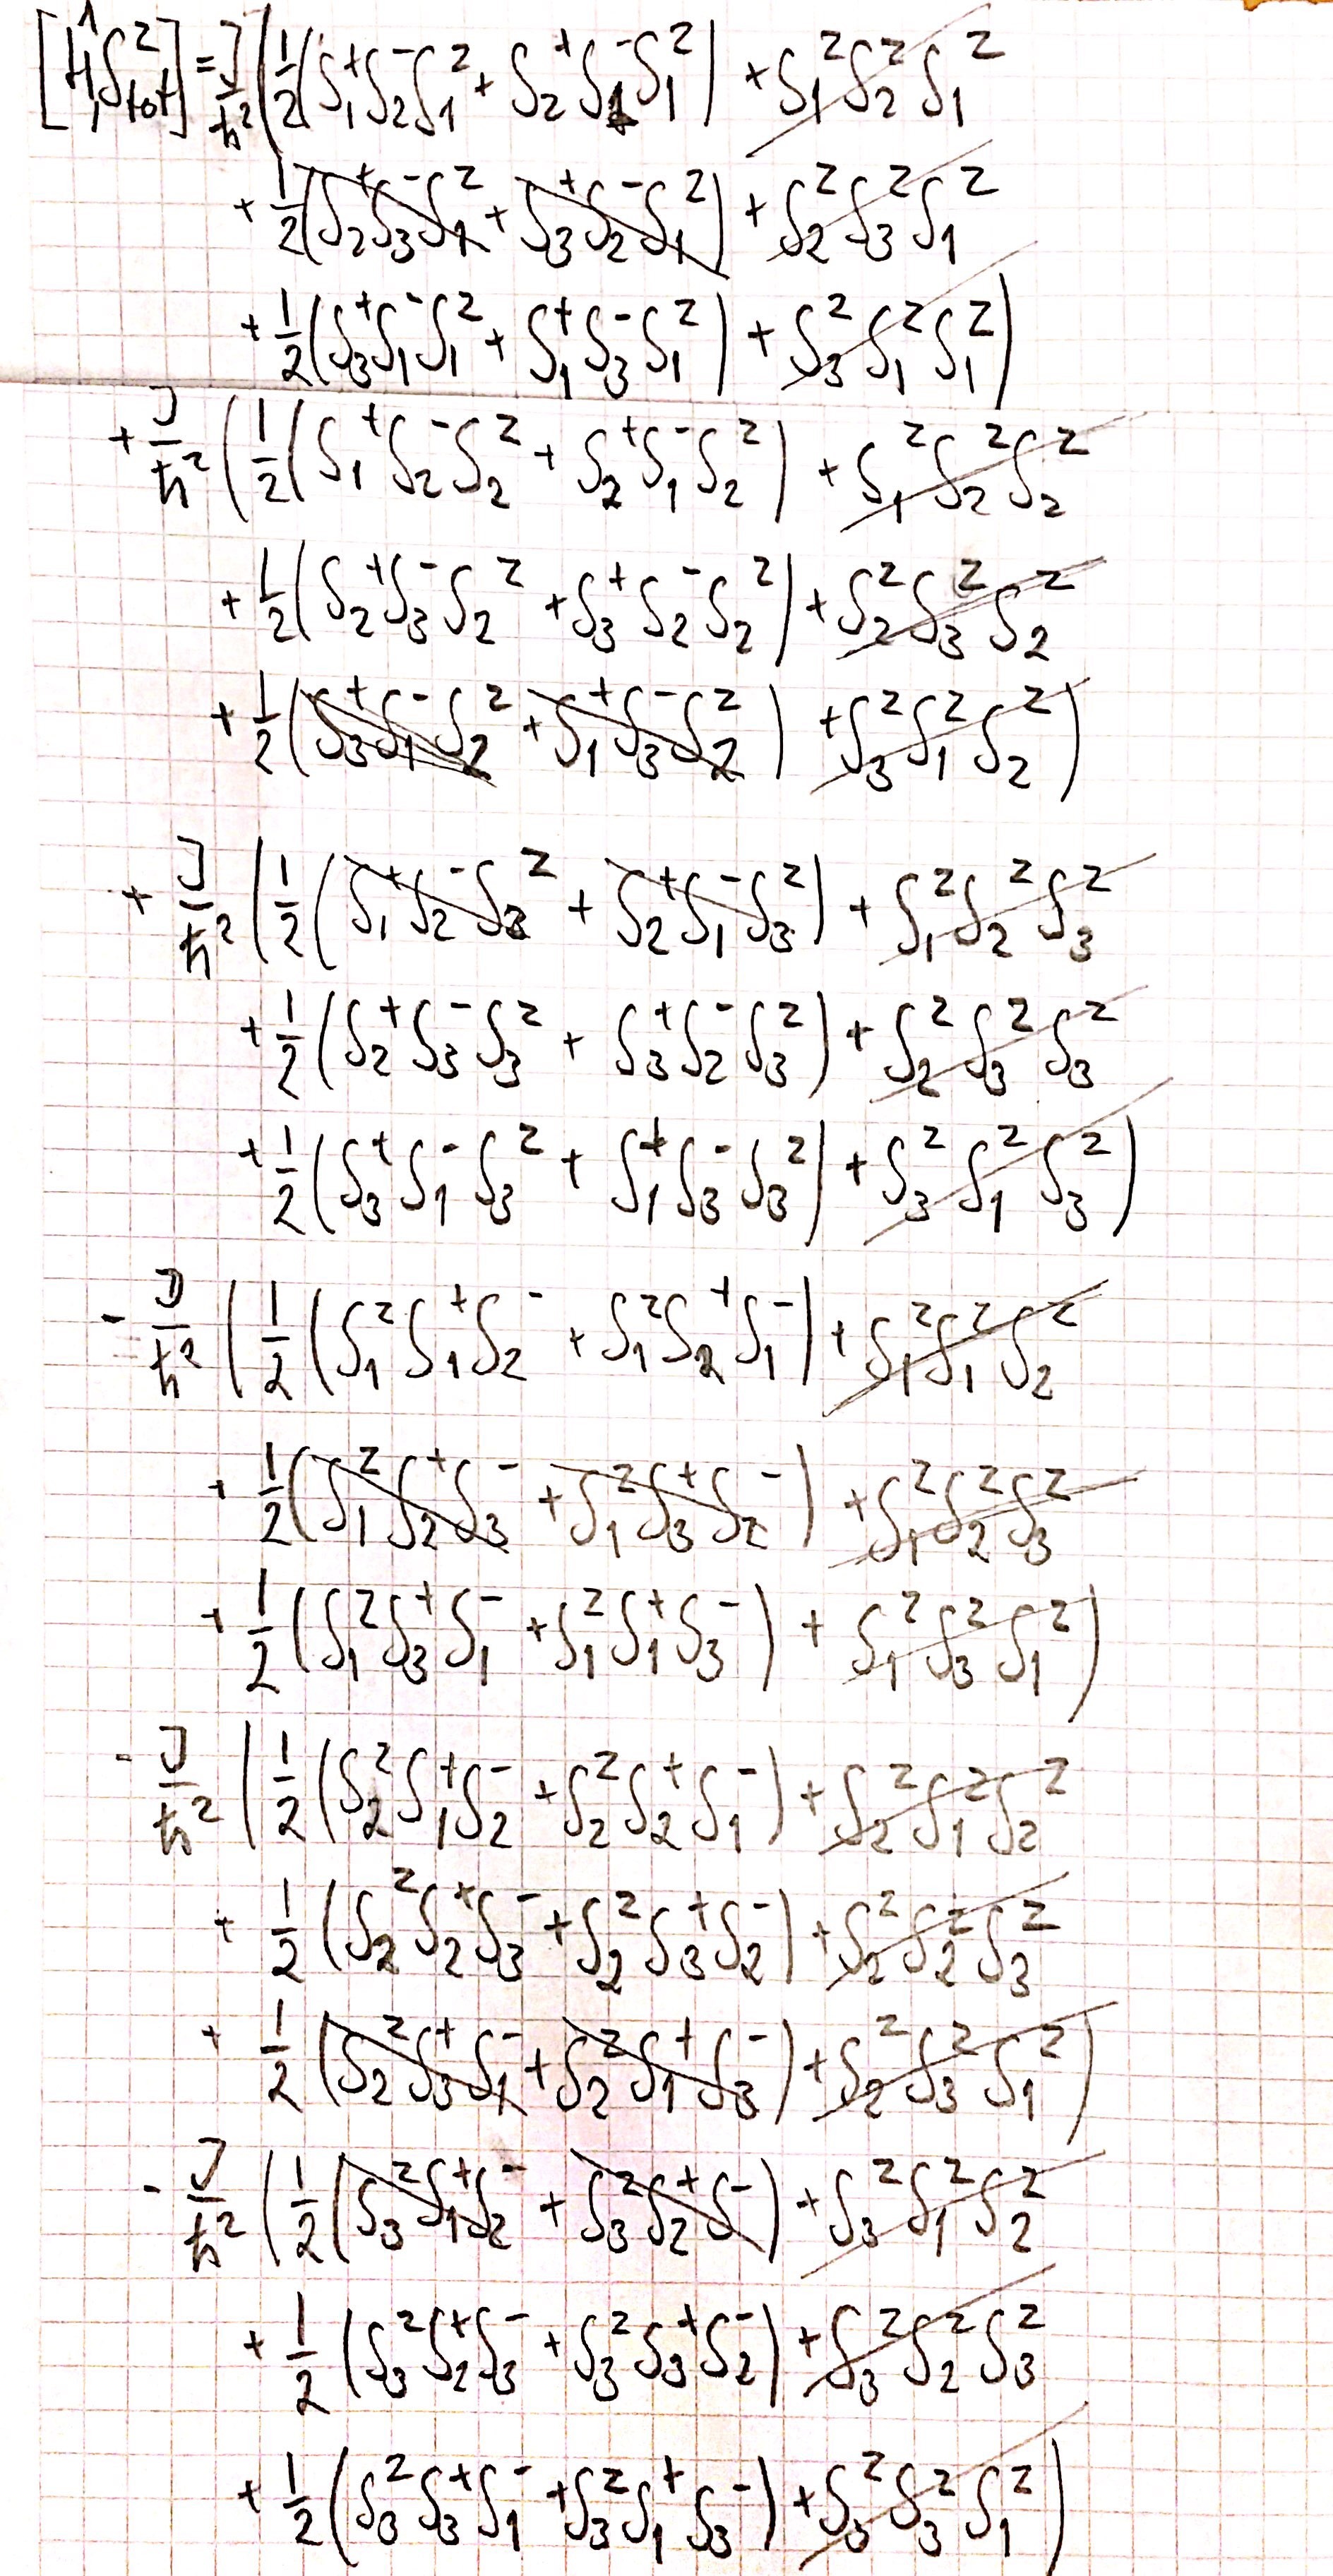 [Ĥ, S^z_tot] = J/ħ² (1/2(S₁⁺S₂⁻S₁ᶻ + S₂⁺S₁⁻S₁ᶻ) + S₁ᶻS₂ᶻS₁ᶻ
+ 1/2(S₂⁺S₃⁻S₁ᶻ + S₃⁺S₂⁻S₁ᶻ) + S₂ᶻS₃ᶻS₁ᶻ
+ 1/2(S₃⁺S₁⁻S₁ᶻ + S₁⁺S₃⁻S₁ᶻ) + S₃ᶻS₁ᶻS₁ᶻ)
+ J/ħ² (1/2(S₁⁺S₂⁻S₂ᶻ + S₂⁺S₁⁻S₂ᶻ) + S₁ᶻS₂ᶻS₂ᶻ
+ 1/2(S₂⁺S₃⁻S₂ᶻ + S₃⁺S₂⁻S₂ᶻ) + S₂ᶻS₃ᶻS₂ᶻ
+ 1/2(S₃⁺S₁⁻S₂ᶻ + S₁⁺S₃⁻S₂ᶻ) + S₃ᶻS₁ᶻS₂ᶻ)
+ J/ħ² (1/2(S₁⁺S₂⁻S₃ᶻ + S₂⁺S₁⁻S₃ᶻ) + S₁ᶻS₂ᶻS₃ᶻ
+ 1/2(S₂⁺S₃⁻S₃ᶻ + S₃⁺S₂⁻S₃ᶻ) + S₂ᶻS₃ᶻS₃ᶻ
+ 1/2(S₃⁺S₁⁻S₃ᶻ + S₁⁺S₃⁻S₃ᶻ) + S₃ᶻS₁ᶻS₃ᶻ)
- J/ħ² (1/2(S₁ᶻS₁⁺S₂⁻ + S₁ᶻS₂⁺S₁⁻) + S₁ᶻS₁ᶻS₂ᶻ
+ 1/2(S₁ᶻS₂⁺S₃⁻ + S₁ᶻS₃⁺S₂⁻) + S₁ᶻS₂ᶻS₃ᶻ
+ 1/2(S₁ᶻS₃⁺S₁⁻ + S₁ᶻS₁⁺S₃⁻) + S₁ᶻS₃ᶻS₁ᶻ)
- J/ħ² (1/2(S₂ᶻS₁⁺S₂⁻ + S₂ᶻS₂⁺S₁⁻) + S₂ᶻS₁ᶻS₂ᶻ
+ 1/2(S₂ᶻS₂⁺S₃⁻ + S₂ᶻS₃⁺S₂⁻) + S₂ᶻS₂ᶻS₃ᶻ
+ 1/2(S₂ᶻS₃⁺S₁⁻ + S₂ᶻS₁⁺S₃⁻) + S₂ᶻS₃ᶻS₁ᶻ)
- J/ħ² (1/2(S₃ᶻS₁⁺S₂⁻ + S₃ᶻS₂⁺S⁻) + S₃ᶻS₁ᶻS₂ᶻ
+ 1/2(S₃ᶻS₂⁺S₃⁻ + S₃ᶻS₃⁺S₂⁻) + S₃ᶻS₂ᶻS₃ᶻ
+ 1/2(S₃ᶻS₃⁺S₁⁻ + S₃ᶻS₁⁺S₃⁻) + S₃ᶻS₃ᶻS₁ᶻ)